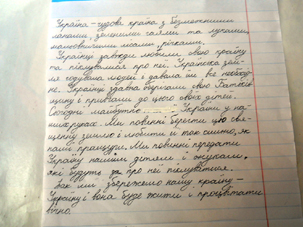 Україна - чудова країна з безмежними
ланами, зеленими гаями та луками,
мальовничими лісами, річками.
Українці завжди любили свою країну
та піклувалися про неї. Українська зем-
ля годувала людей і давала їм все необхід-
не. Українці здавна оберігали свою Батьків-
щину і привчали до цього своїх дітей.
Сьогодні майбутнє України у на-
ших руках. Ми повинні берегти цю свя-
щенну землю і любити її так сильно, як
наші пращури. Ми повинні передати
Україну нашим дітям і онукам,
які будуть за про неї піклуватися.
ми збережемо нашу країну -
Україну і вона буде жити і процвітати
вічно.